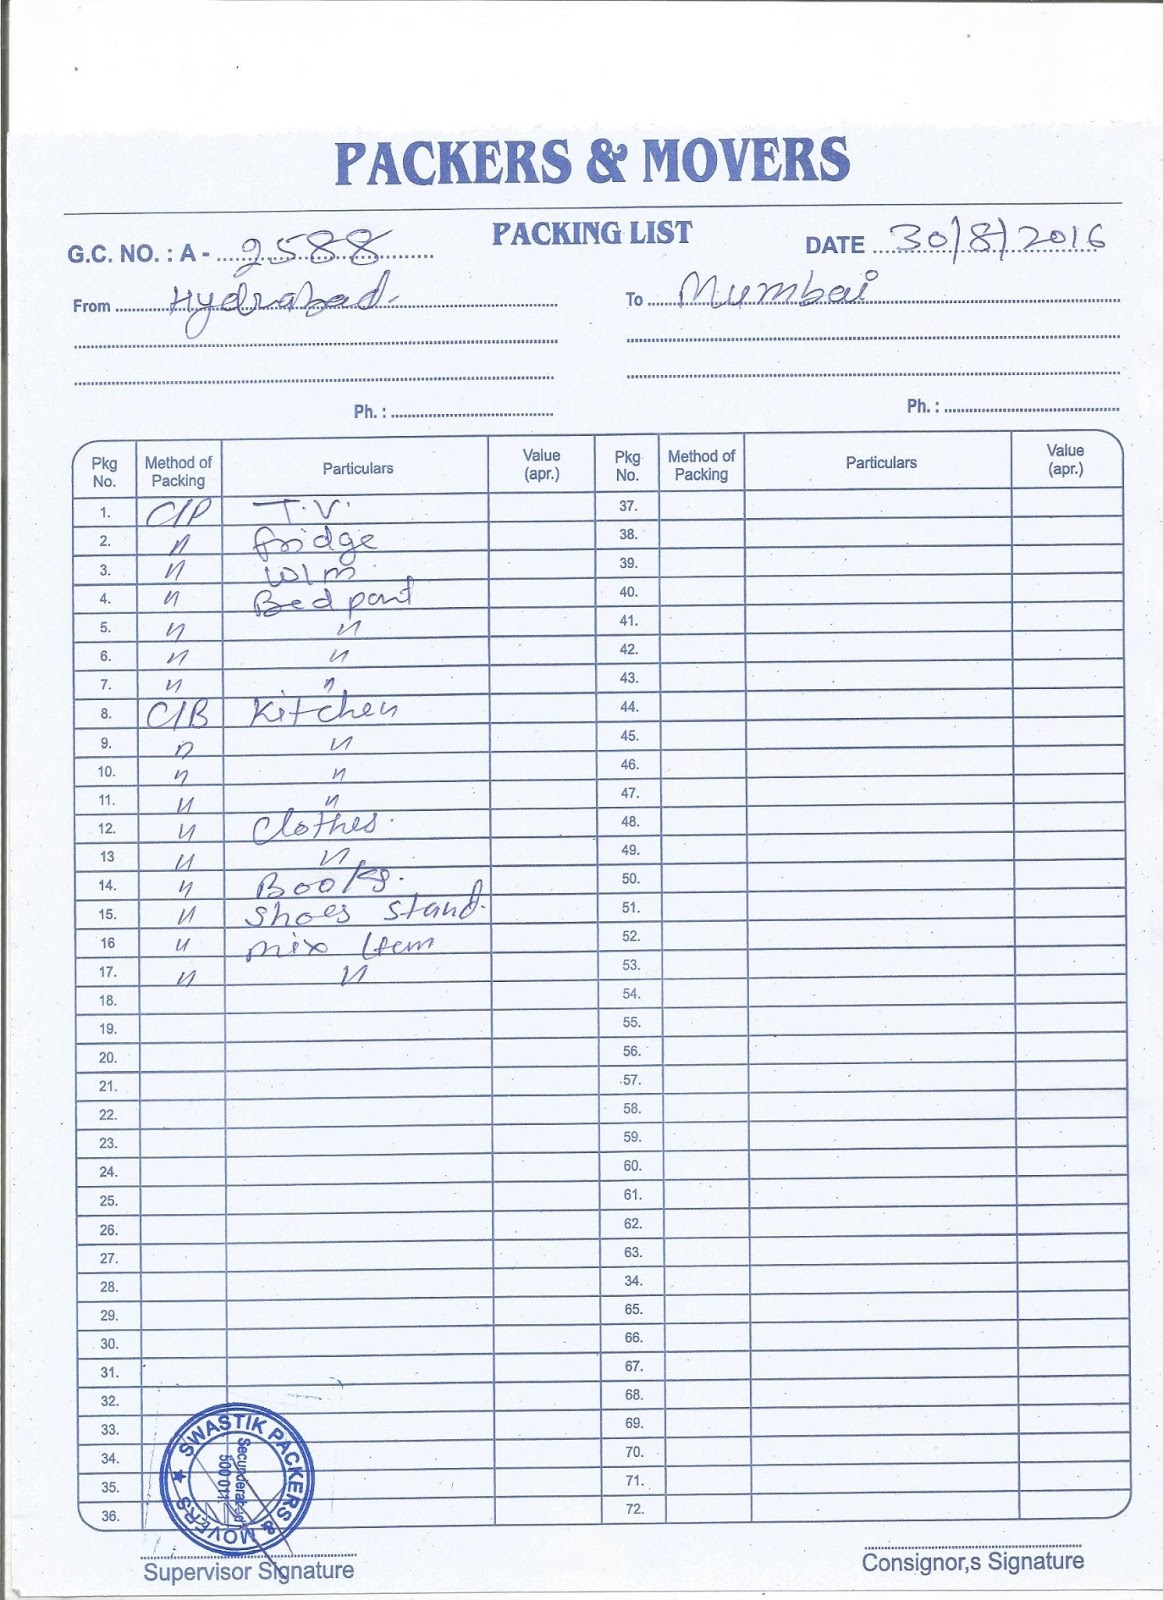 PACKERS & MOVERS
PACKING LIST
G.C. NO. : A - 2588
DATE 30/8/2016
From Hydrabad
To Mumbai
Ph. :
Ph. :
Pkg No. Method of Packing Particulars Value (apr.) Pkg No. Method of Packing Particulars Value (apr.)
1. C/P T.V. 37.
2. " fridge 38.
3. " W/m 39.
4. " Bed part 40.
5. " " 41.
6. " " 42.
7. " " 43.
8. C/B Kitchen 44.
9. " " 45.
10. " " 46.
11. " " 47.
12. " Clothes. 48.
13 " " 49.
14. " Books. 50.
15. " Shoes stand. 51.
16 " mix Item 52.
17. " " 53.
18. 54.
19. 55.
20. 56.
21. 57.
22. 58.
23. 59.
24. 60.
25. 61.
26. 62.
27. 63.
28. 34.
29. 65.
30. 66.
31. 67.
32. 68.
33. 69.
34. 70.
35. 71.
36. 72.
SWASTIK PACKERS & MOVERS
500 011
Supervisor Signature
Consignor,s Signature